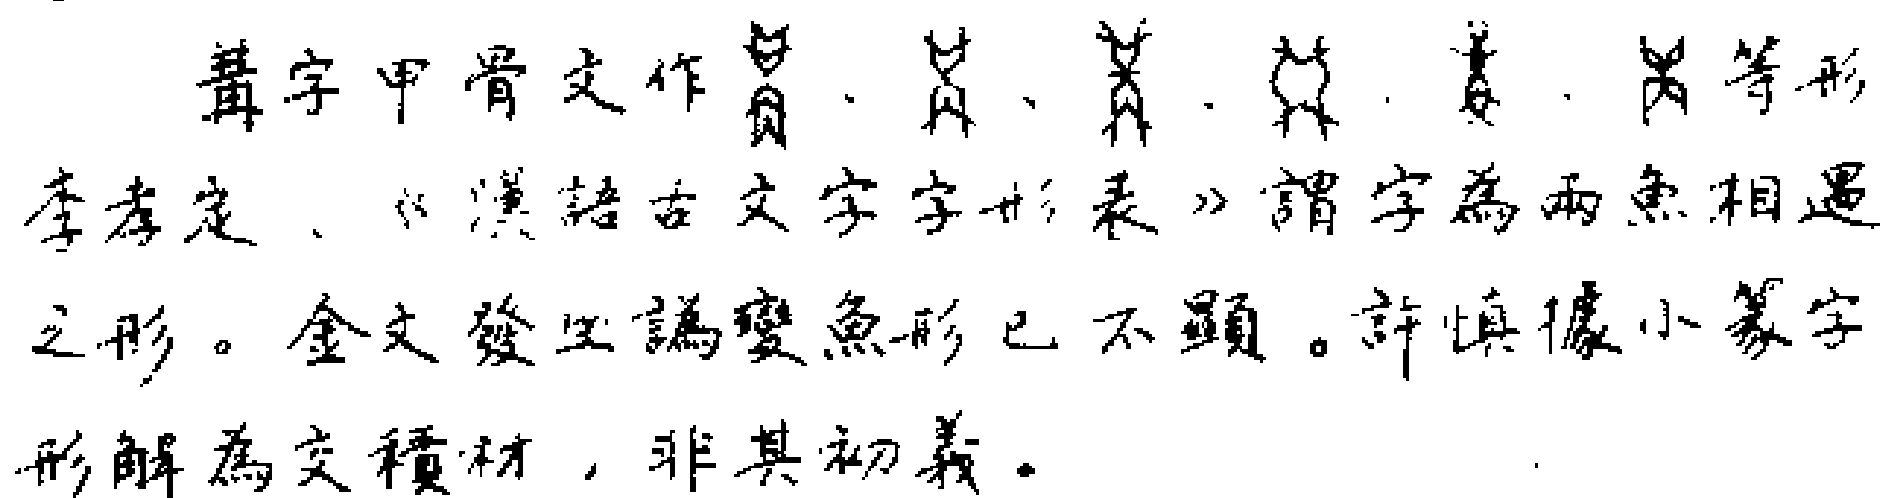 冓字甲骨文作、、、、、等形
李孝定、《漢語古文字字形表》謂字為兩魚相遇
之形。金文發生譌變魚形已不顯。許慎據小篆字
形解為交積材,非其初義。